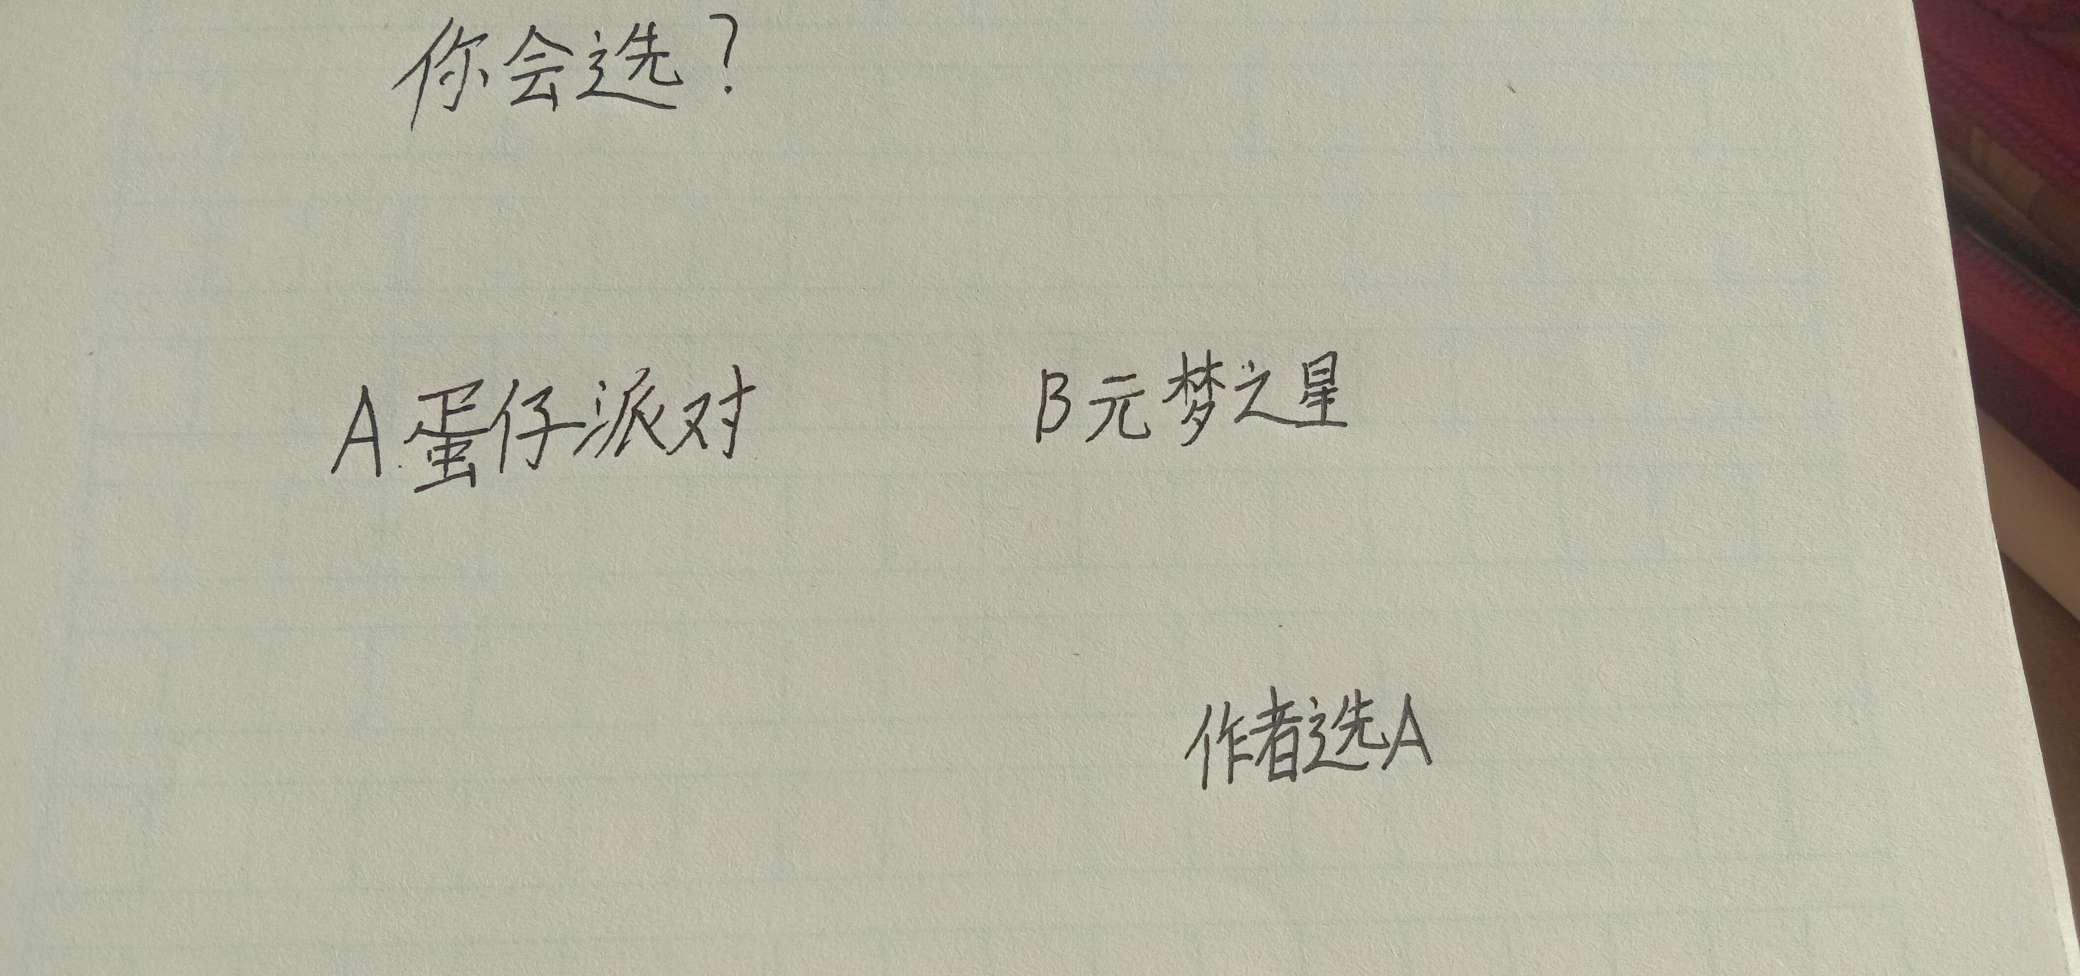 你会选？
A.蛋仔派对
B元梦之星
作者选A